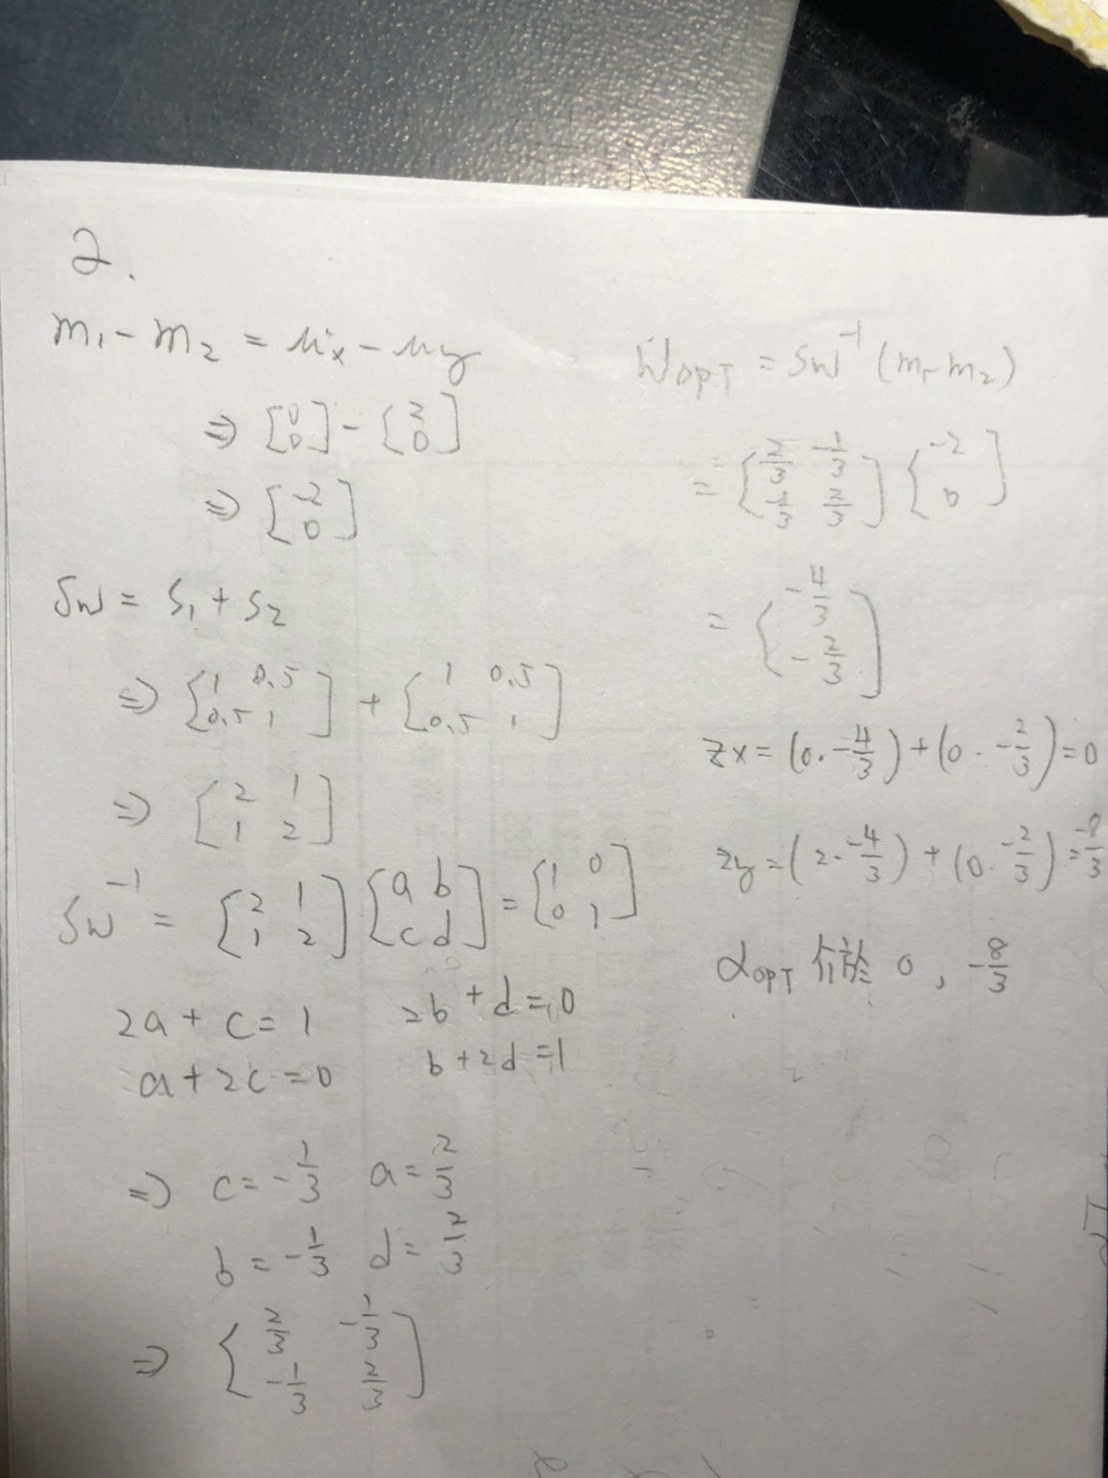 2.
m₁ - m₂ = μx - μy
⇒ [0 0] - [2 0]
⇒ [-2 0]
Sw = S₁ + S₂
⇒ [1 0.5 0.5 1] + [1 0.5 0.5 1]
⇒ [2 1 1 2]
Sw⁻¹ = [2 1 1 2] [a b c d] = [1 0 0 1]
2a + c = 1 2b + d = 0
a + 2c = 0 b + 2d = 1
⇒ c = -1/3 a = 2/3
b = -1/3 d = 2/3
⇒ [2/3 -1/3 -1/3 2/3]
WOPT = Sw⁻¹ (m₁-m₂)
= [2/3 -1/3 -1/3 2/3] [-2 0]
= [-4/3 -2/3]
zx = (0·-4/3) + (0·-2/3) = 0
zy = (2·-4/3) + (0·-2/3) = -8/3
αOPT 介於 0, -8/3